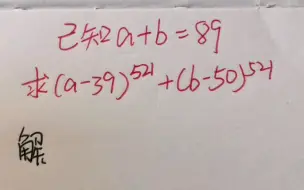 已知a+b=89
求(a-39)^521+(b-50)^521
解